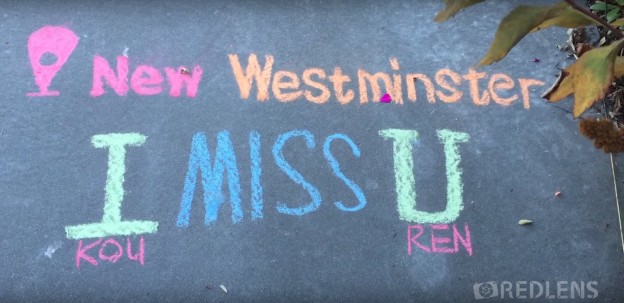 New Westminster
I MISS U
KOU REN
REDLENS